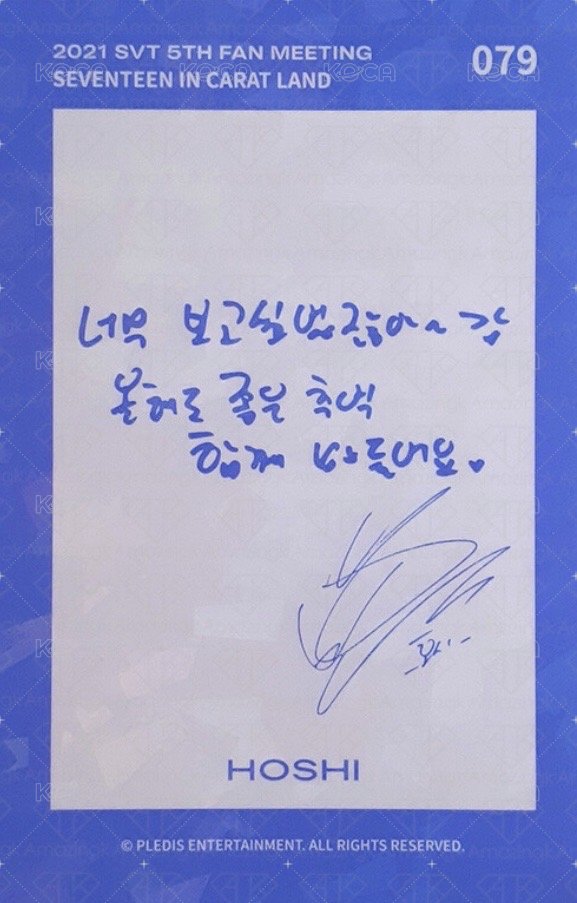 2021 SVT 5TH FAN MEETING
079
SEVENTEEN IN CARAT LAND
너무 보고싶었잖아~
올해도 좋은 추억
함께 만들어요.
호시
HOSHI
© PLEDIS ENTERTAINMENT. ALL RIGHTS RESERVED.